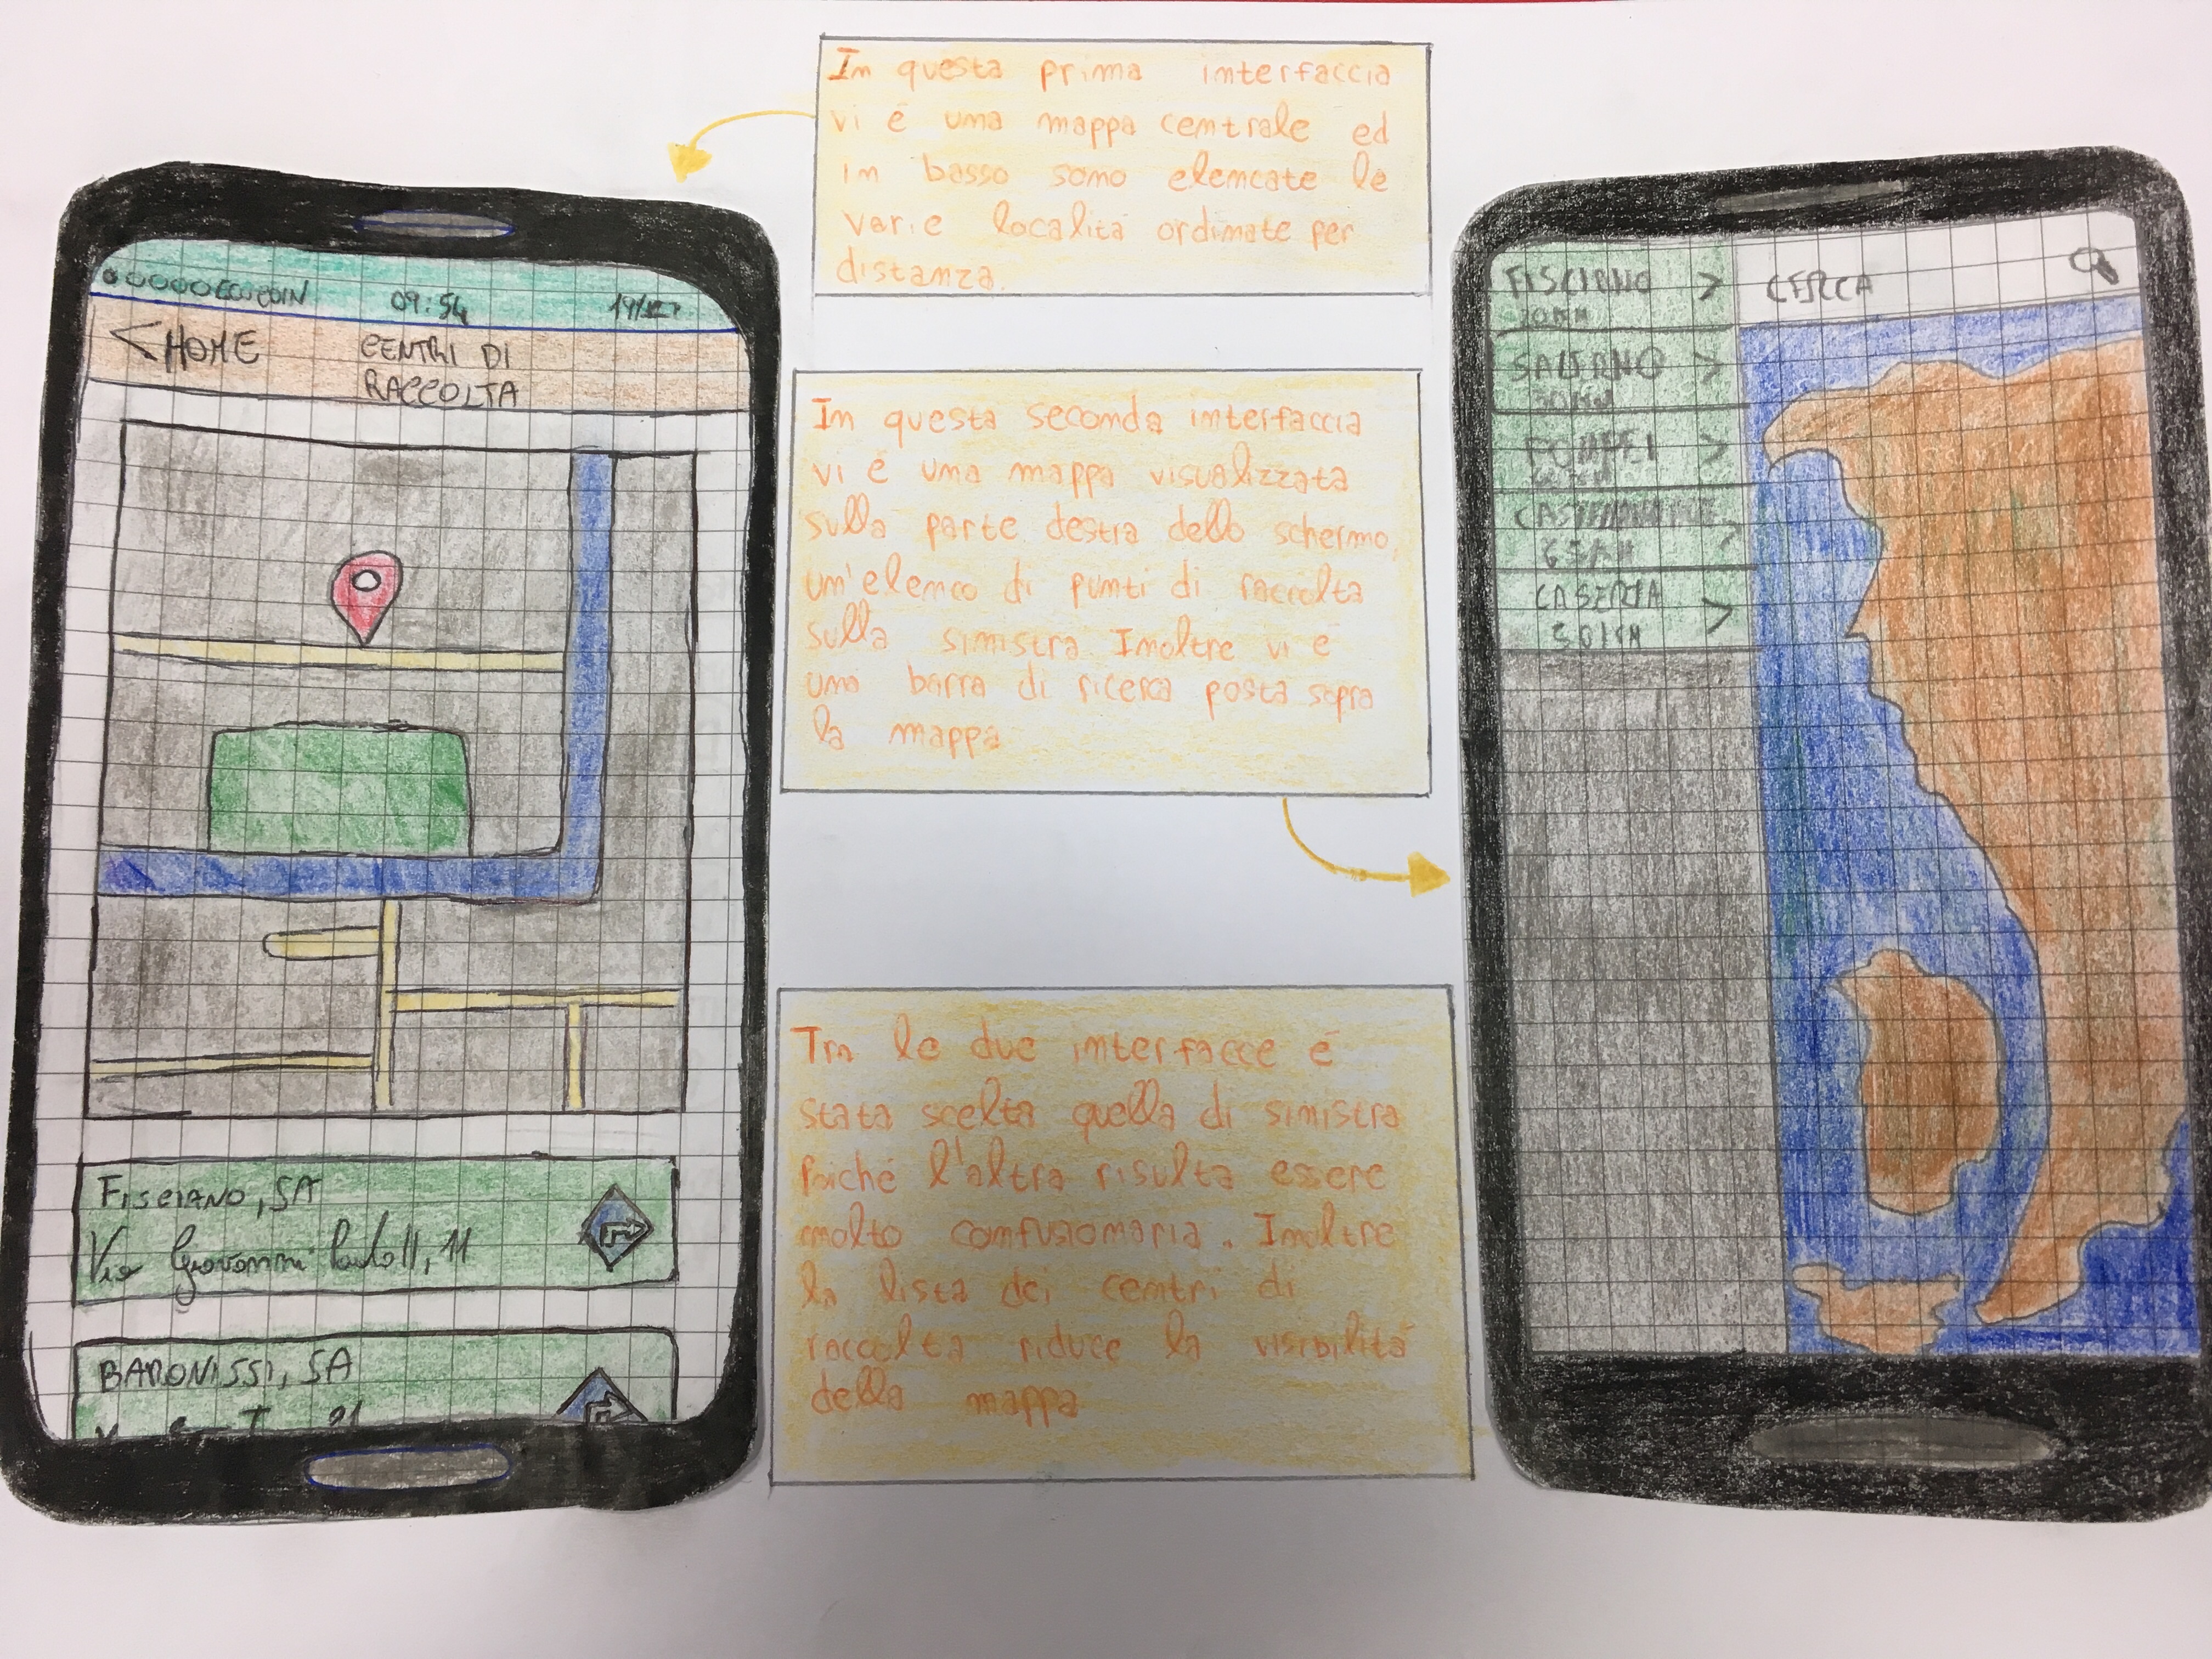 ECOCOIN 09:54
< HOME CENTRI DI
RACCOLTA
FISCIANO, SA
Via Giovanni 11
BARONISSI, SA
In questa prima interfaccia
vi è una mappa centrale ed
in basso sono elencate le
varie località ordinate per
distanza.
In questa seconda interfaccia
vi è una mappa visualizzata
sulla parte destra dello schermo,
un'elenco di punti di raccolta
sulla sinistra. Inoltre vi è
una barra di ricerca posta sopra
la mappa
Tra le due interfacce è
stata scelta quella di sinistra
poiché l'altra risulta essere
molto confusionaria. Inoltre
la lista dei centri di
raccolta riduce la visibilità
della mappa
FISCIANO >
SALERNO >
POMPEI >
CASERTA >
50KM
CERCA